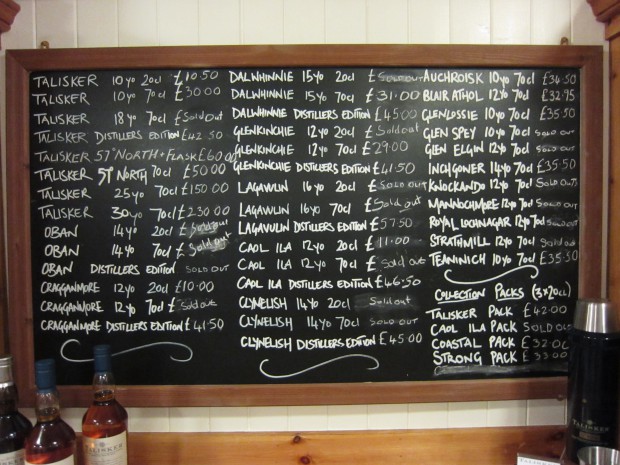 TALISKER 10yo 20cl £10.50
TALISKER 10yo 70cl £30.00
TALISKER 18yo 70cl £Sold out
TALISKER DISTILLERS EDITION £42.50
TALISKER 57° NORTH + FLASK £60.00
TALISKER 57° NORTH 70cl £50.00
TALISKER 25yo 70cl £150.00
TALISKER 30yo 70cl £230.00
OBAN 14yo 20cl £Sold out
OBAN 14yo 70cl £Sold out
OBAN DISTILLERS EDITION SOLD OUT
CRAGGANMORE 12yo 20cl £10.00
CRAGGANMORE 12yo 70cl £Sold out
CRAGGANMORE DISTILLERS EDITION £41.50
DALWHINNIE 15yo 20cl £SOLD OUT
DALWHINNIE 15yo 70cl £31.00
DALWHINNIE DISTILLERS EDITION £45.00
GLENKINCHIE 12yo 20cl £Sold out
GLENKINCHIE 12yo 70cl £29.00
GLENKINCHIE DISTILLERS EDITION £41.50
LAGAVULIN 16yo 20cl £SOLD OUT
LAGAVULIN 16yo 70cl £Sold out
LAGAVULIN DISTILLERS EDITION £57.50
CAOL ILA 12yo 20cl £11.00
CAOL ILA 12yo 70cl £Sold out
CAOL ILA DISTILLERS EDITION £46.50
CLYNELISH 14yo 20cl Sold out
CLYNELISH 14yo 70cl SOLD OUT
CLYNELISH DISTILLERS EDITION £45.00
AUCHROISK 10yo 70cl £34.50
BLAIR ATHOL 12yo 70cl £32.95
GLENLOSSIE 10yo 70cl £35.50
GLEN SPEY 10yo 70cl SOLD OUT
GLEN ELGIN 12yo 70cl SOLD OUT
INCHGOWER 14yo 70cl £35.50
KNOCKANDO 12yo 70cl SOLD OUT
MANNOCHMORE 12yo 70cl SOLD OUT
ROYAL LOCHNAGAR 12yo 70cl SOLD OUT
STRATHMILL 12yo 70cl Sold out
TEANINICH 10yo 70cl £35.50
COLLECTION PACKS (3x20cl)
TALISKER PACK £42.00
CAOL ILA PACK SOLD OUT
COASTAL PACK £32.00
STRONG PACK £33.00
TALISKER
TALISKER